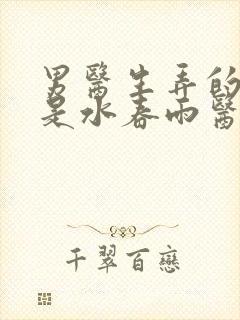 男醫生弄的
是水春雨醫
千翠百戀